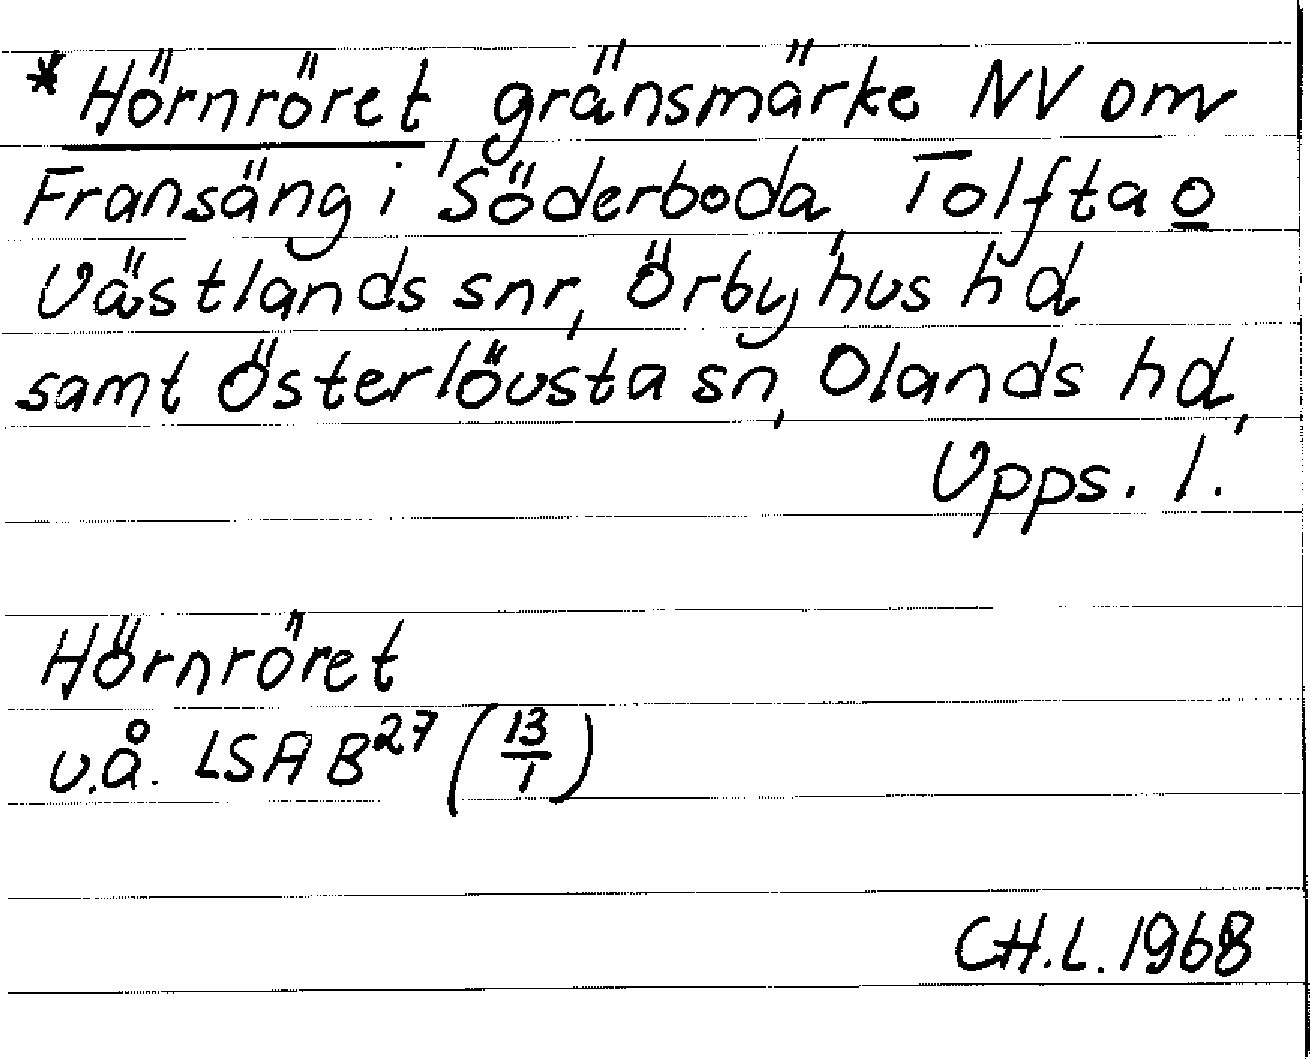 *Hörnröret, gränsmärke NV om
Fransäng i Söderboda, Tolfta o
Västlands snr, Örbyhus hd
samt Österlövsta sn, Olands hd,
Upps. l.
Hörnröret
u.å. LSA B²⁷ (13/1)
CH.L. 1968